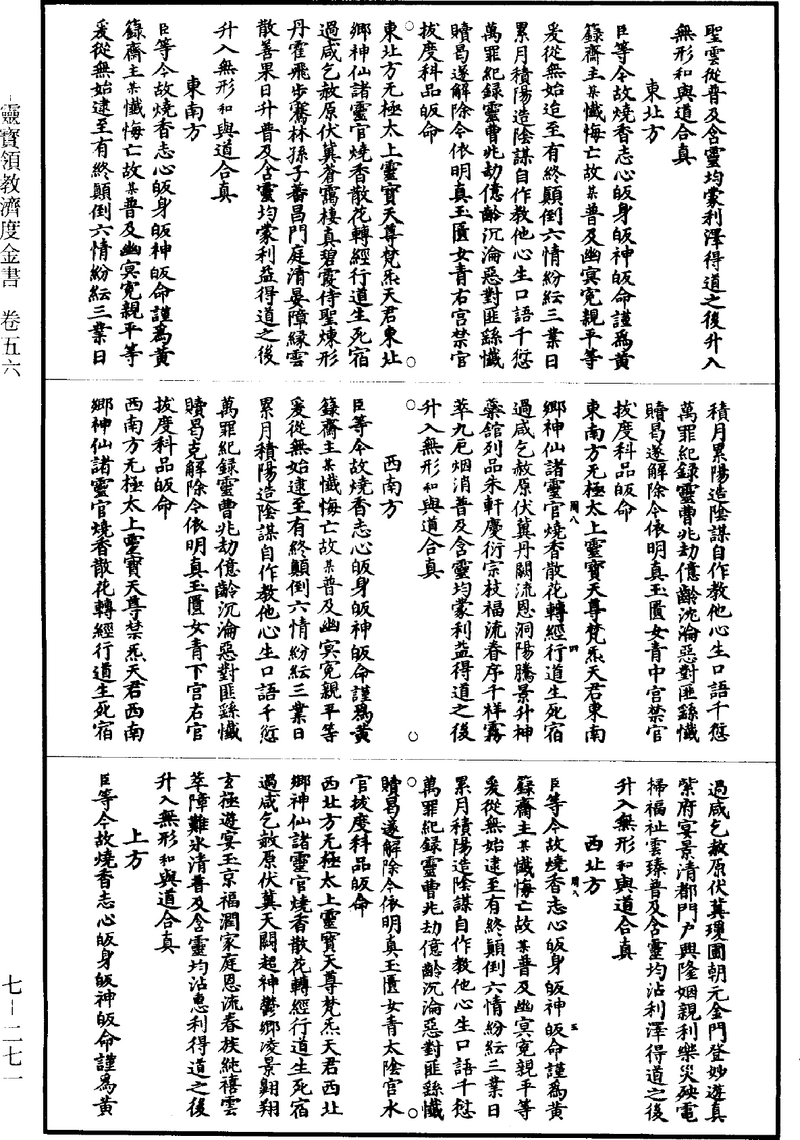 聖雲從普及含靈均蒙利澤得道之後升入
無形和與道合真
東北方
臣等今故燒香志心皈身皈神皈命謹為黃
籙齋主某懺悔亡故某普及幽冥冤親平等
爰從無始迨至有終顛倒六情紛紜三業日
累月積陽造陰謀自作教他心生口語千愆
萬罪紀錄靈曹兆劫億齡沉淪惡對匪繇懺
贖曷遂解除今依明真玉匱女青右宫禁官
拔度科品皈命
東北方无極太上靈寶天尊梵炁天君東北
鄉神仙諸靈官燒香散花轉經行道生死宿
過咸乞赦原伏冀蒼靄棲真碧霞侍聖煉形
丹霍飛步騫林孫子蕃昌門庭清晏障緣雲
散善果日升普及含靈均蒙利益得道之後
升入無形和與道合真
東南方
臣等今故燒香志心皈身皈神皈命謹為黃
籙齋主某懺悔亡故某普及幽冥冤親平等
爰從無始逮至有終顛倒六情紛紜三業日
積月累陽造陰謀自作教他心生口語千愆
萬罪紀錄靈曹兆劫億齡沈淪惡對匪繇懺
贖曷遂解除今依明真玉匱女青中宫禁官
拔度科品皈命
東南方无極太上靈寶天尊梵炁天君東南
鄉神仙諸靈官燒香散花轉經行道生死宿
過咸乞赦原伏冀丹闕流恩洞陽騰景升神
藥館列品朱軒慶衍宗枝福流眷序千祥霧
萃九厄烟消普及含靈均蒙利益得道之後
升入無形和與道合真
西南方
臣等今故燒香志心皈身皈神皈命謹為黃
籙齋主某懺悔亡故某普及幽冥冤親平等
爰從無始逮至有終顛倒六情紛紜三業日
累月積陽造陰謀自作教他心生口語千愆
萬罪紀錄靈曹兆劫億齡沉淪惡對匪繇懺
贖曷克解除今依明真玉匱女青下宫右官
拔度科品皈命
西南方无極太上靈寶天尊梵炁天君西南
鄉神仙諸靈官燒香散花轉經行道生死宿
過咸乞赦原伏冀瓊圃朝元金門登妙遊真
紫府宴景清都門户興隆姻親利樂災殃電
掃福祉雲臻普及含靈均沾利澤得道之後
升入無形和與道合真
西北方
臣等今故燒香志心皈身皈神皈命謹為黃
籙齋主某懺悔亡故某普及幽冥冤親平等
爰從無始逮至有終顛倒六情紛紜三業日
累月積陽造陰謀自作教他心生口語千愆
萬罪紀錄靈曹兆劫億齡沉淪惡對匪繇懺
贖曷遂解除今依明真玉匱女青太陰官水
官拔度科品皈命
西北方无極太上靈寶天尊梵炁天君西北
鄉神仙諸靈官燒香散花轉經行道生死宿
過咸乞赦原伏冀天闕超神鬱鄉凌景翺翔
玄極遊宴玉京福潤家庭恩流眷族純禧雲
萃障難氷清普及含靈均沾惠利得道之後
升入無形和與道合真
上方
臣等今故燒香志心皈身皈神皈命謹為黃
靈寶領教濟度金書 卷五六
七－二七一